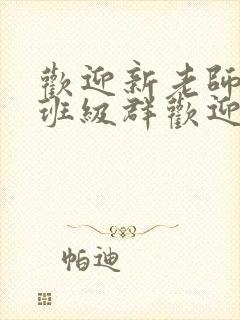 歡迎新老師
班級群歡迎
帕迪